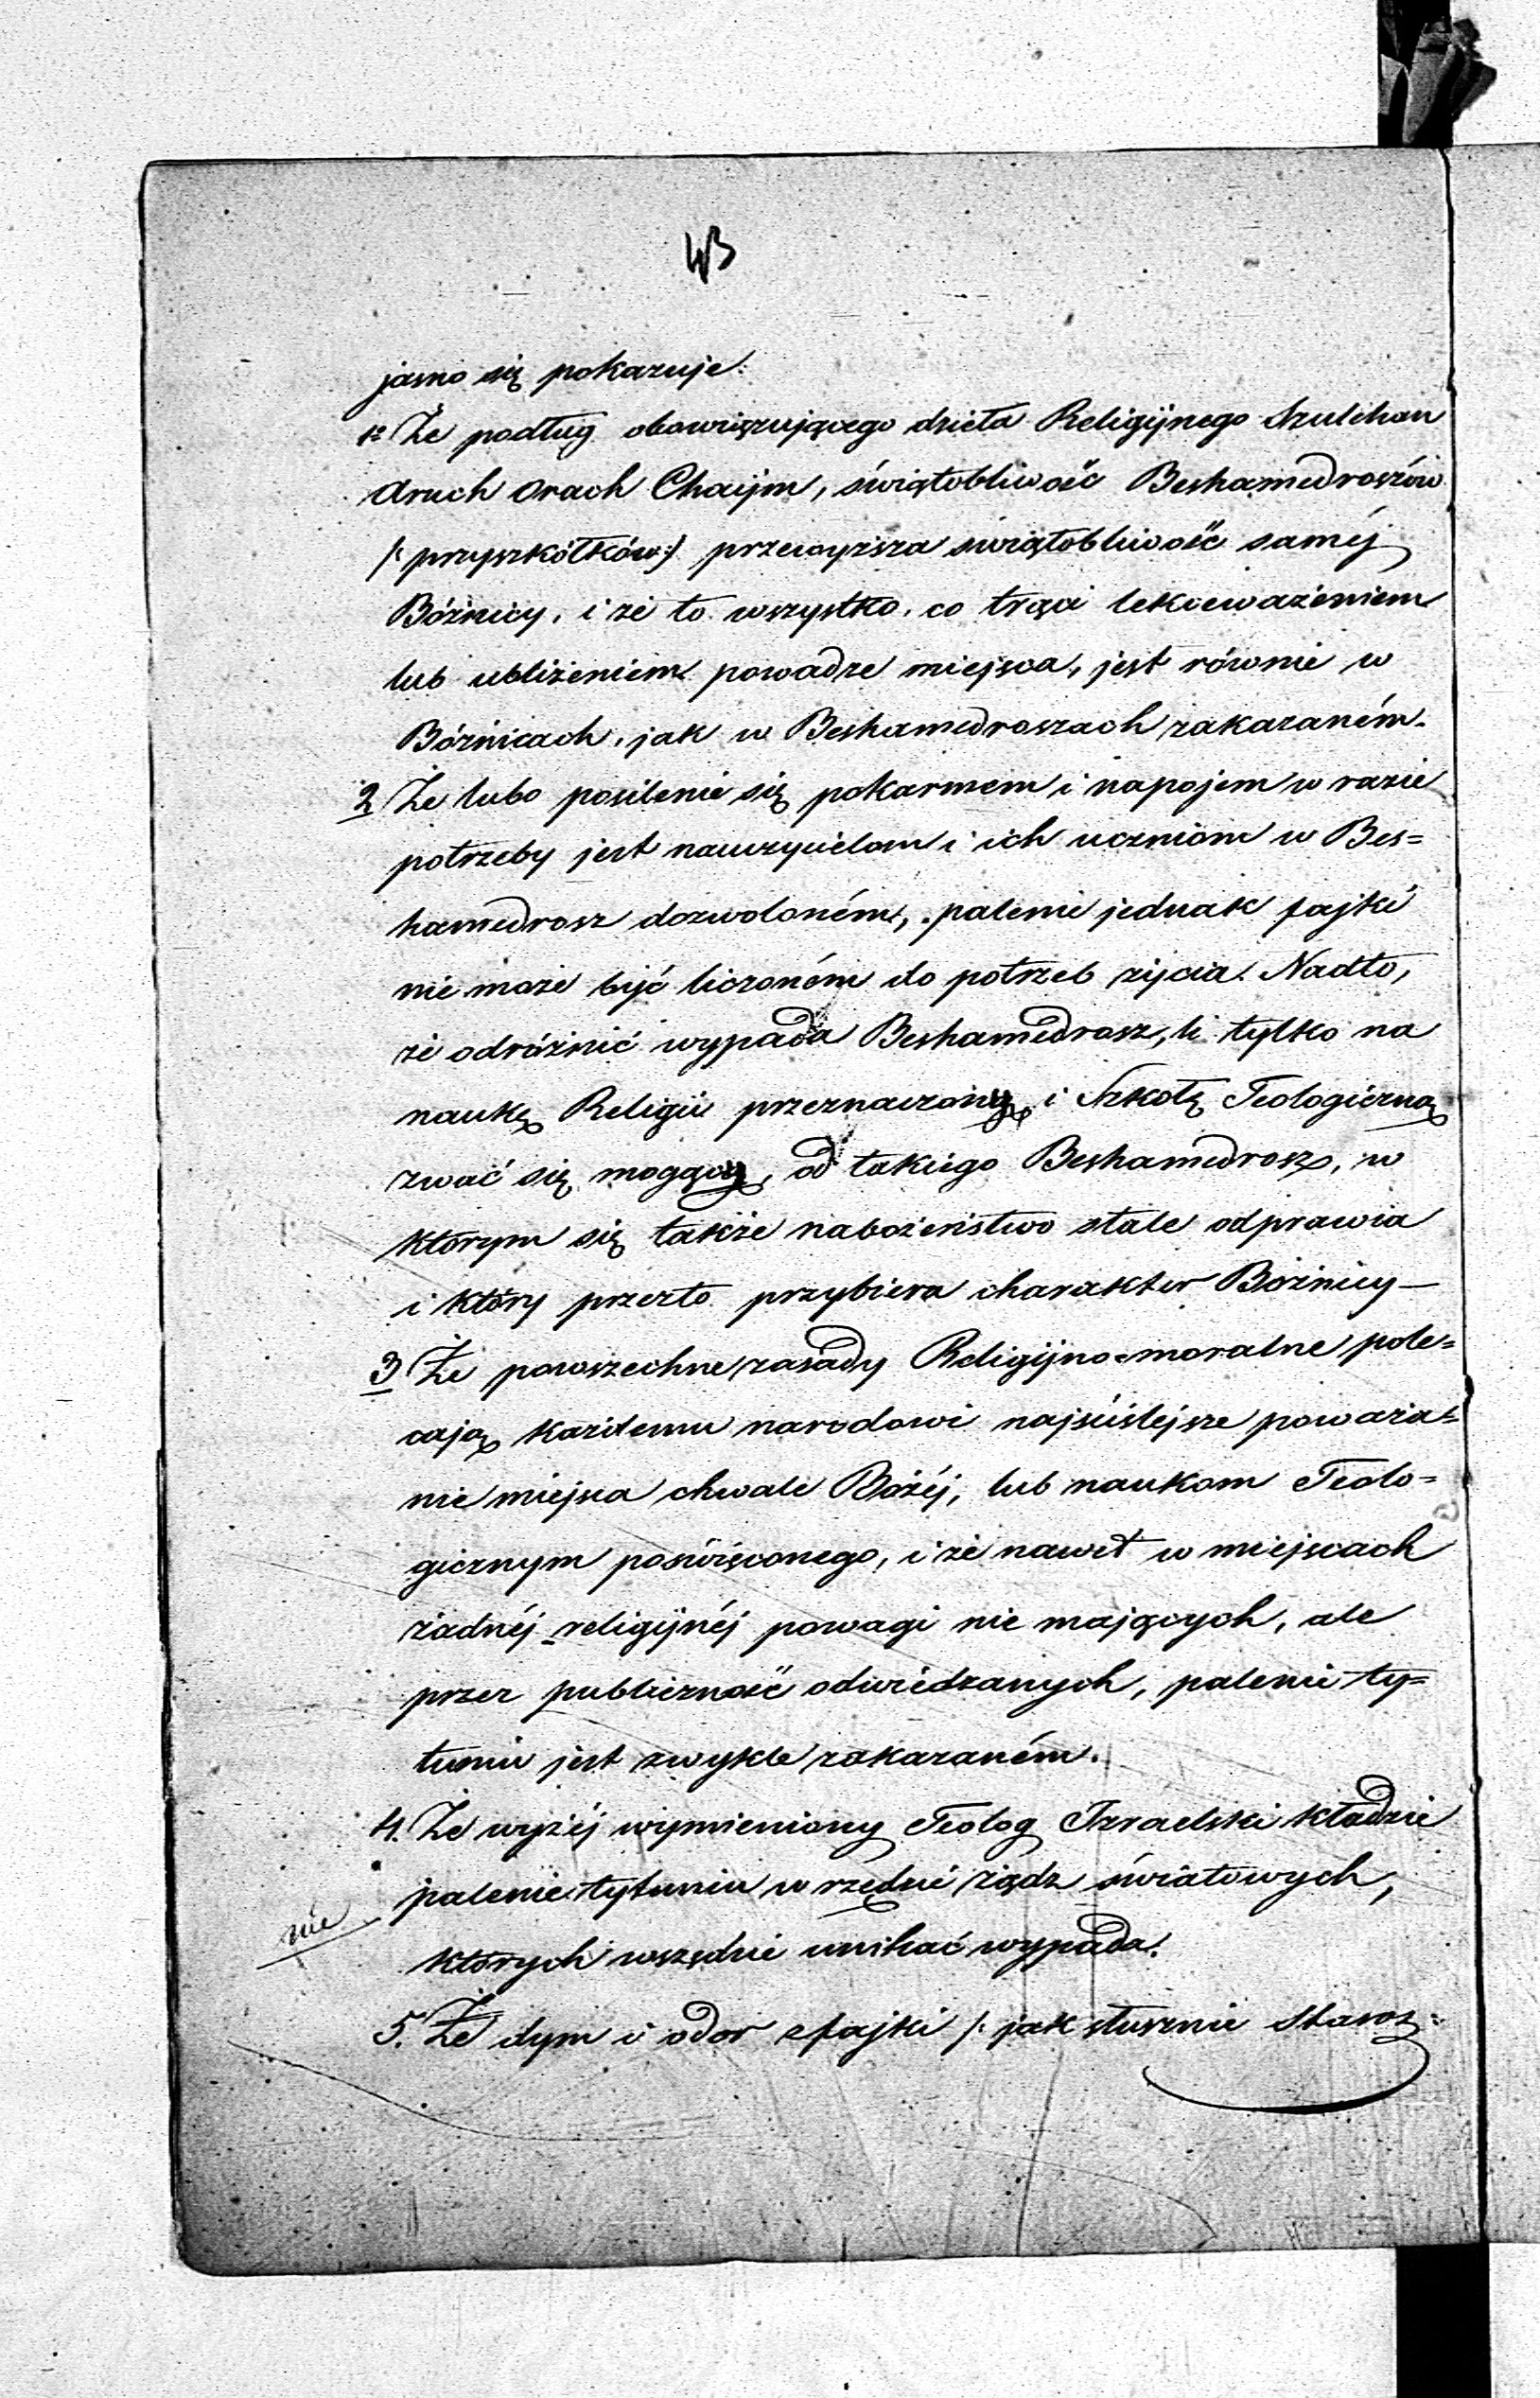 43
jasno się pokazuje:
1º Że podług obowiązującego dzieła Religijnego Szulchan
Aruch Orach Chaijm, świątobliwość Beshamedroszów
/: przyszkółków :/ przewyższa świątobliwość saméj
Bóżnicy, i że to wszystko, co trąci lekceważeniem
lub ubliżeniem powadze miejsca, jest równie w
Bóżnicach, jak w Beshamedroszach zakazaném.
2 Że lubo posilenie się pokarmem i napojem w razie
potrzeby jest nauczycielom i ich uczniom w Bes=
hamedrosz dozwoloném, palenie jednak fajki
nie może być liczoném do potrzeb życia. Nadto,
że odróżnić wypada Beshamedrosz, li tylko na
naukę Religii przeznaczony i Szkołą Teologiczną
zwać się mogący, od takiego Beshamedrosz, w
którym się także nabożeństwo stale odprawia
i który przeto przybiera charakter Bóżnicy —
3 Że powszechne zasady Religijno-moralne pole=
cają każdemu narodowi najściślejsze poważa=
nie miejsca chwale Bożéj, lub naukom Teolo=
gicznym poświęconego, i że nawet w miejscach
żadnéj religijnéj powagi nie mających, ale
przez publiczność odwiedzanych, palenie ty=
tuniu jest zwykle zakazaném.
4. Że wyżéj wymieniony Teolog Izraelski kładzie
palenie tytuniu w rzędzie żądz światowych,
nie
których wszędzie unikać wypada.
5. Że dym i odor z fajki /: jak słusznie Staroz: